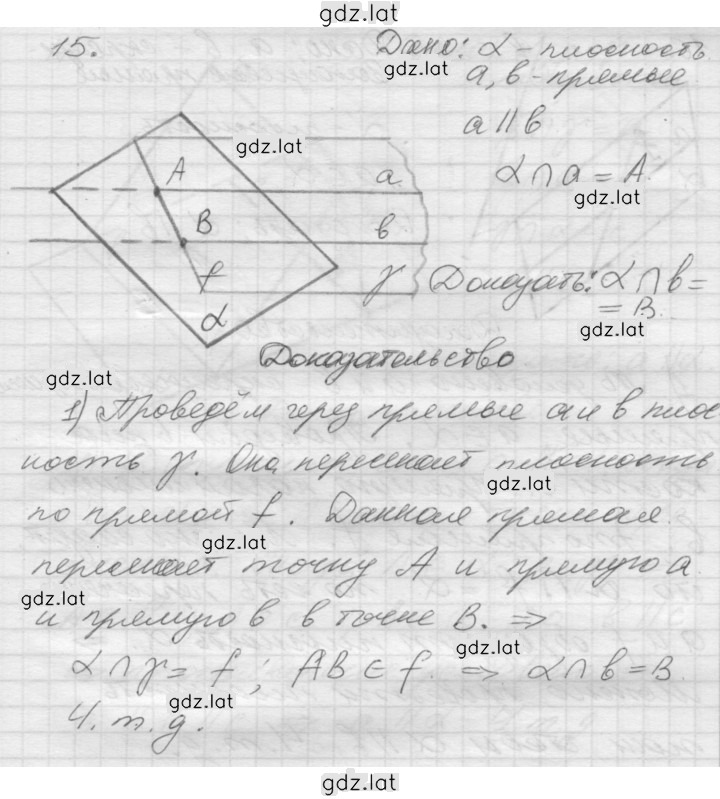 gdz.lat
15.
Дано: α - плосность
gdz.lat
а, в - прямые
а || в
gdz.lat
α ∩ а = А.
gdz.lat
А
а
В
в
f
γ
α
Доказать: α ∩ в =
= В.
gdz.lat
Доказательство
gdz.lat
1) Проведём через прямые а и в плос
ность γ. Она пересекает плосность
gdz.lat
по прямой f. Данная прямая
gdz.lat
пересекает точку А и прямую а
gdz.lat
и прямую в в точке В. ⇒
gdz.lat
α ∩ γ = f; АВ ∈ f ⇒ α ∩ в = В.
gdz.lat
Ч. т. д.
gdz.lat